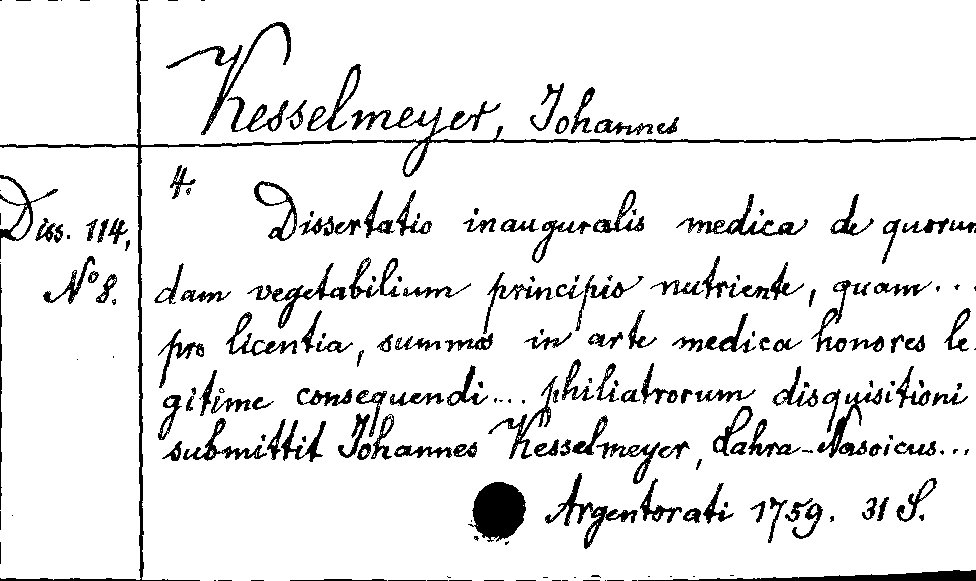 Kesselmeyer, Johannes
4.
Diss. 114,
No 8.
Dissertatio inauguralis medica de quorun
dam vegetabilium principio nutriente, quam...
pro licentia, summos in arte medica honores le
gitime consequendi... philiatrorum disquisitioni
submittit Johannes Kesselmeyer, Lahra-Nasoicus...
Argentorati 1759. 31 S.